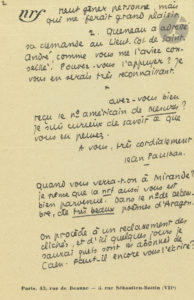 2.
nrf
peut gêner personne, mais
qui me ferait grand plaisir.
2. Queneau a adressé
sa demande au Lieut. Col. de Saint-
André, comme vous me l'aviez con-
seillé. Pouvez-vous l'appuyer? je
vous en serais très reconnaissant.
avez-vous bien
reçu le n° américain de Mesures?
je suis curieux de savoir ce que
vous en pensez.
à vous, très cordialement
Jean Paulhan.
quand vous verra-t-on à Mirande?
je pense que la nrf aussi vous est
bien parvenue. Dans le n° de décem-
bre, de très beaux poèmes d'Aragon.
On procède à un reclassement des
clichés, et d'ici quelques jours je
saurai quels sont les abonnés de
Caen. Faut-il encore vous l'écrire?
Paris, 43, rue de Beaune — 5, rue Sébastien-Bottin (VIIᵉ)